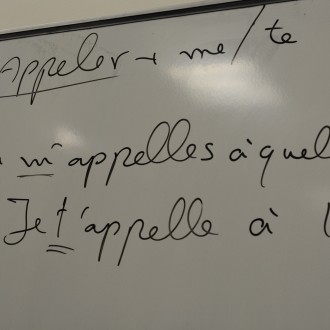 Appeler + me/te
m'appelles à quel
Je t'appelle à